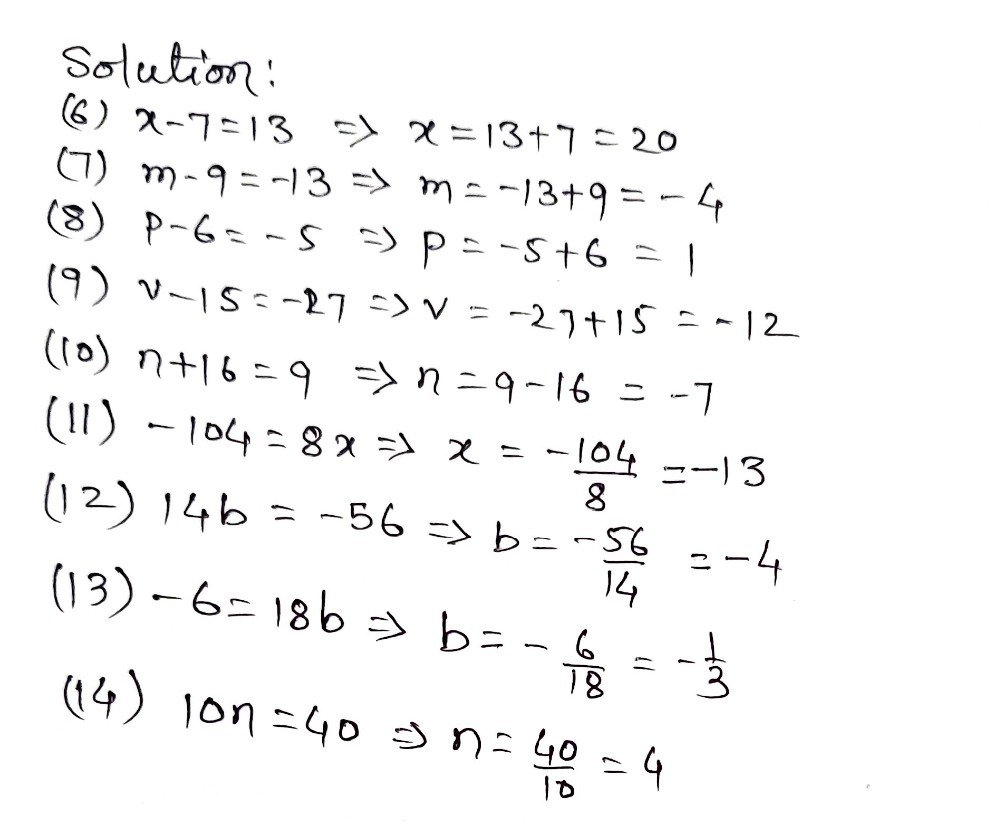 Solution:
(6) x-7=13 => x=13+7=20
(7) m-9=-13 => m=-13+9=-4
(8) p-6=-5 => p=-5+6=1
(9) v-15=-27 => v=-27+15=-12
(10) n+16=9 => n=9-16=-7
(11) -104=8x => x=-104/8=-13
(12) 14b=-56 => b=-56/14=-4
(13) -6=18b => b=-6/18=-1/3
(14) 10n=40 => n=40/10=4